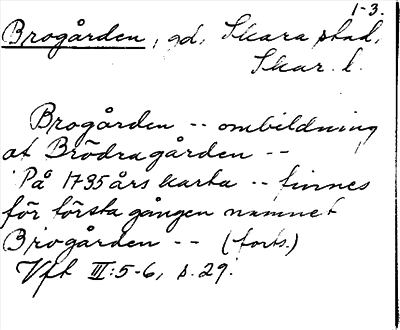 1-3.
Brogården, gd, Skara stad,
Skar. l.
Brogården -- ombildning
af Brödragården --
På 1735 års karta -- finnes
för första gången namnet
Brogården -- (forts.)
Vft III:5-6, s. 29.